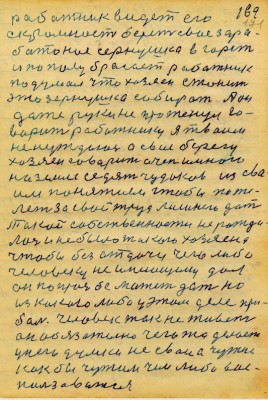 169
171
работник видет его
скромность берет свое зара
ботоное зернушка в горст
и по полу бросает работник
подумал что хозяен станит
это зернушка собират А он
даже руки не протенул го
варит работнику я твоим
не нуждаюся а свае берегу
хозяен говарит очен много
на земле седят чудаков из сва
им понятием чтобы поже
лет за свой труд лишнего дат
такой собственности не рожда
лоз и небыло такого хозяена
чтобы без отдачи чего либо
человеку не имеющему дал
он поцоз не может дат но
из какого либо у этом деле при
бал. человек так не живет
он обязателно чего то делает
у него думка не своя а чужи
как бы чужим чем либо вос
ползаватся